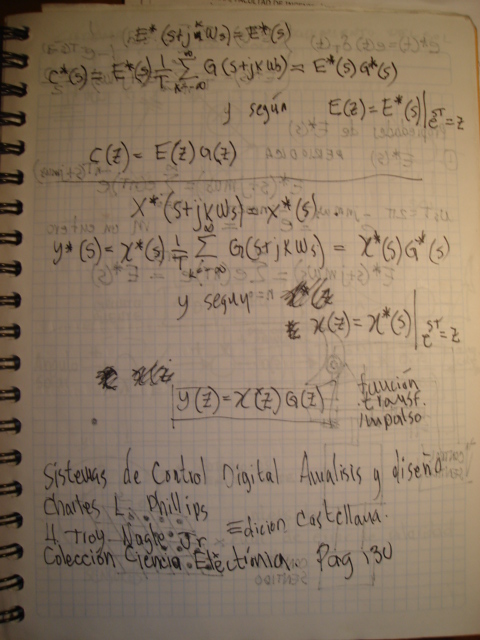 E*(s+jkωs) = E*(s)
C*(s) = E*(s) 1/T ∑ k=-∞ ∞ G(s+jkωs) = E*(s) G*(s)
y según E(z) = E*(s)| e^sT = z
C(z) = E(z) G(z)
X*(s+jkωs) = X*(s).
y*(s) = X*(s) 1/T ∑ k=-∞ ∞ G(s+jkωs) = X*(s) G*(s)
y según
X(z) = X*(s)| e^sT = z
y(z) = X(z) G(z) función
transf.
impulso
Sistemas de Control Digital Analisis y diseño
Charles L. Phillips
H. Troy Nagle Jr Edicion Castellana.
Colección Ciencia Electrónica Pag 130